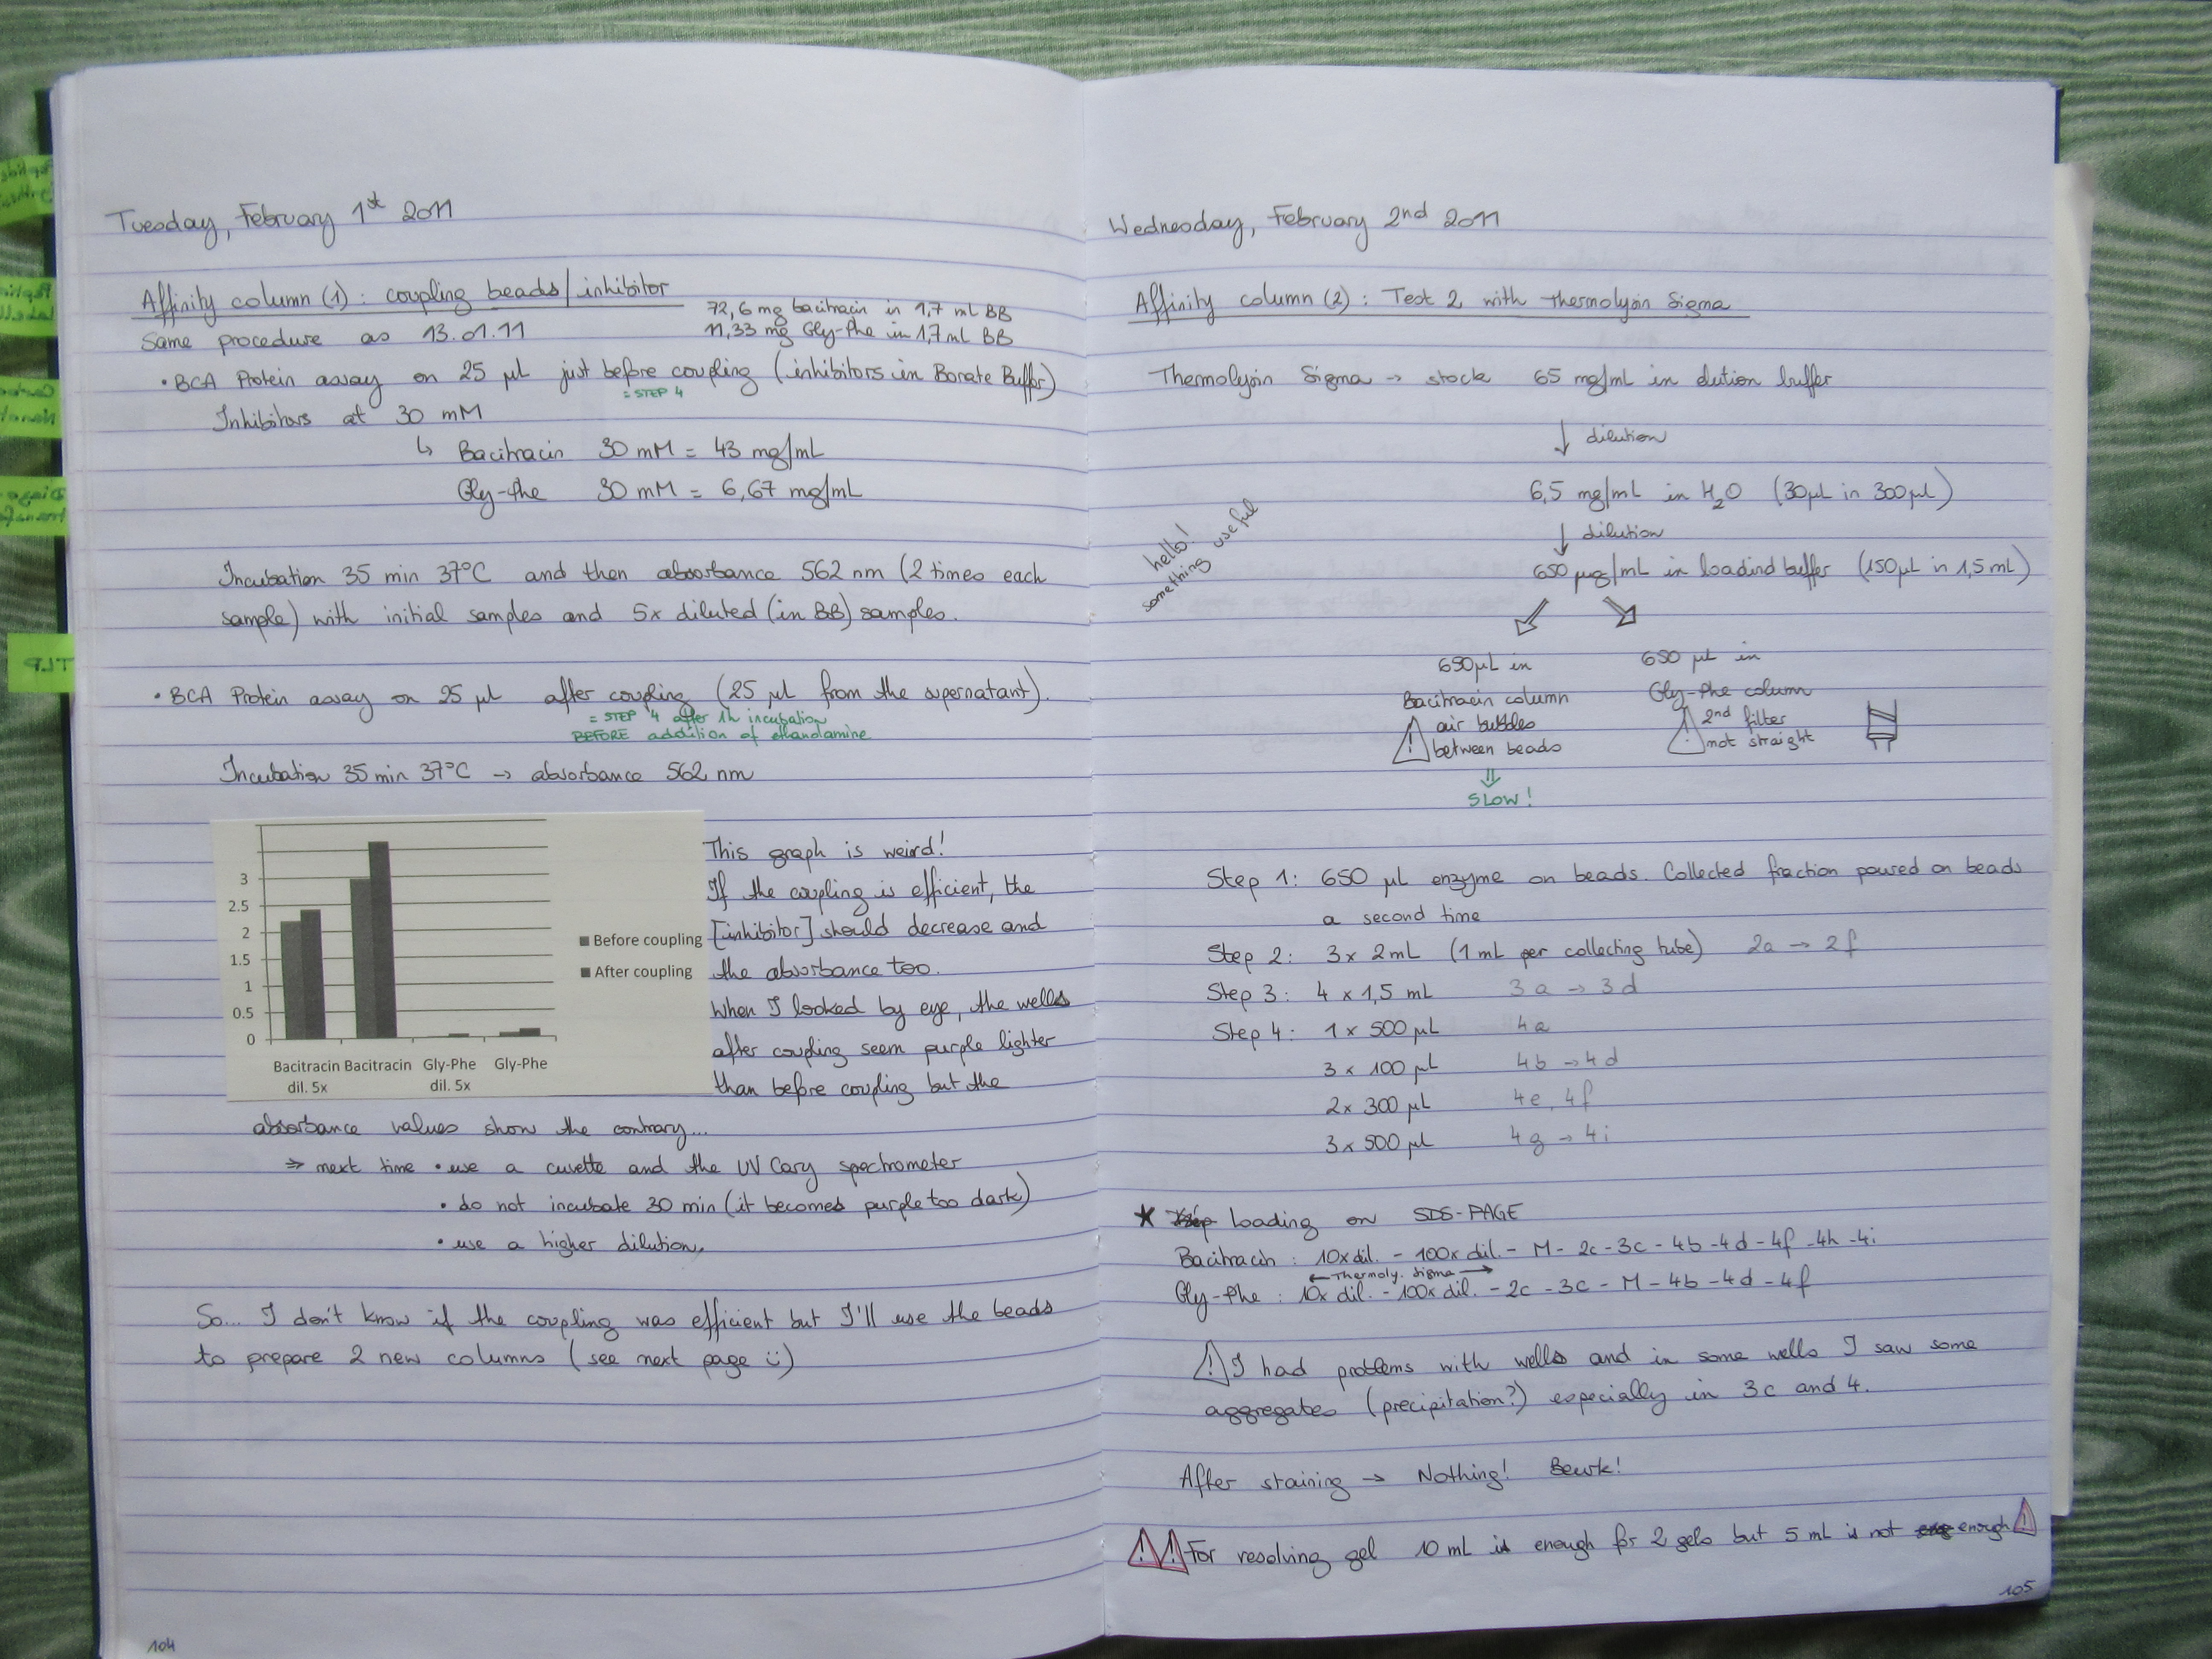 Tuesday, February 1st 2011
Affinity column (1): coupling beads/inhibitor
Same procedure as 13.01.11
72,6 mg bacitracin in 1,7 mL BB
11,33 mg Gly-Phe in 1,7 mL BB
• BCA Protein assay on 25 µL just before coupling (inhibitors in Borate Buffer)
= STEP 4
Inhibitors at 30 mM
↳ Bacitracin 30 mM = 43 mg/mL
Gly-Phe 30 mM = 6,67 mg/mL
Incubation 35 min 37°C and then absorbance 562 nm (2 times each
sample) with initial samples and 5x diluted (in BB) samples.
• BCA Protein assay on 25 µL after coupling (25 µL from the supernatant).
= STEP 4 after 1h incubation
BEFORE addition of ethanolamine
Incubation 35 min 37°C → absorbance 562 nm
3
2.5
2
1.5
1
0.5
0
Bacitracin dil. 5x
Bacitracin
Gly-Phe dil. 5x
Gly-Phe
Before coupling
After coupling
This graph is weird!
If the coupling is efficient, the
[inhibitor] should decrease and
the absorbance too.
When I looked by eye, the wells
after coupling seem purple lighter
than before coupling but the
absorbance values show the contrary...
⇒ next time • use a cuvette and the UV Cary spectrometer
• do not incubate 30 min (it becomes purple too dark)
• use a higher dilution.
So... I don't know if the coupling was efficient but I'll use the beads
to prepare 2 new columns (see next page ü)
104
Wednesday, February 2nd 2011
Affinity column (2): Test 2 with thermolysin Sigma
Thermolysin Sigma → stock 65 mg/mL in elution buffer
↓ dilution
6,5 mg/mL in H2O (30µL in 300µL)
↓ dilution
650 µg/mL in loadind buffer (150µL in 1,5 mL)
hello!
something useful
650µL in
Bacitracin column
air bubbles
between beads
⇓
SLOW!
650 µL in
Gly-Phe column
2nd filter
not straight
Step 1: 650 µL enzyme on beads. Collected fraction poured on beads
a second time
Step 2: 3 x 2 mL (1 mL per collecting tube) 2a → 2f
Step 3: 4 x 1,5 mL 3a → 3d
Step 4: 1 x 500 µL 4a
3 x 100 µL 4b → 4d
2 x 300 µL 4e, 4f
3 x 500 µL 4g → 4i
★ Loading on SDS-PAGE
Bacitracin: 10x dil. - 100x dil. - M - 2c - 3c - 4b - 4d - 4f - 4h - 4i
← Thermoly. Sigma →
Gly-Phe: 10x dil. - 100x dil. - 2c - 3c - M - 4b - 4d - 4f
⚠ I had problems with wells and in some wells I saw some
aggregates (precipitation?) especially in 3c and 4.
After staining → Nothing! Beurk!
⚠⚠ For resolving gel 10 mL is enough for 2 gels but 5 mL is not enough ⚠
105